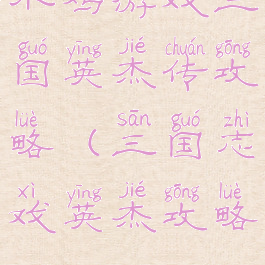 鸡游戏三
guó yīng jié chuán gōng
国英杰传攻
luè sān guó zhì
略（三国志
xì yīng jié gōng luè
戏英杰攻略